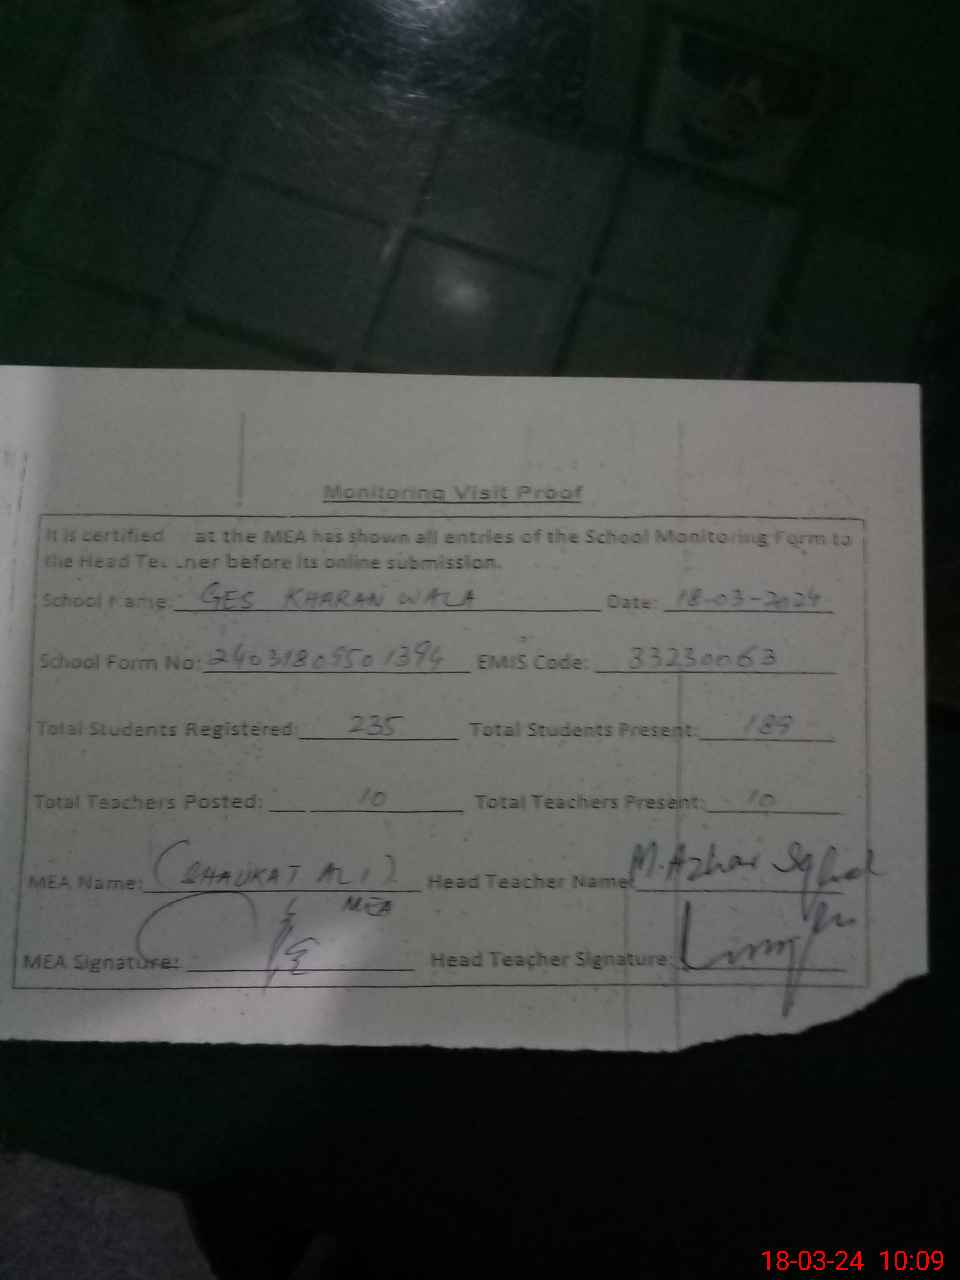 Monitoring Visit Proof
It is certified at the MEA has shown all entries of the School Monitoring Form to
the Head Te ner before its online submission.
School Name: GES KHARAN WALA Date: 18-03-2024
School Form No: EMIS Code: 33230063
Total Students Registered: 235 Total Students Present: 189
Total Teachers Posted: 10 Total Teachers Present: 10
MEA Name: (SHAUKAT ALI) Head Teacher Name: M. Azhar
MEA
MEA Signature: Head Teacher Signature:
18-03-24 10:09